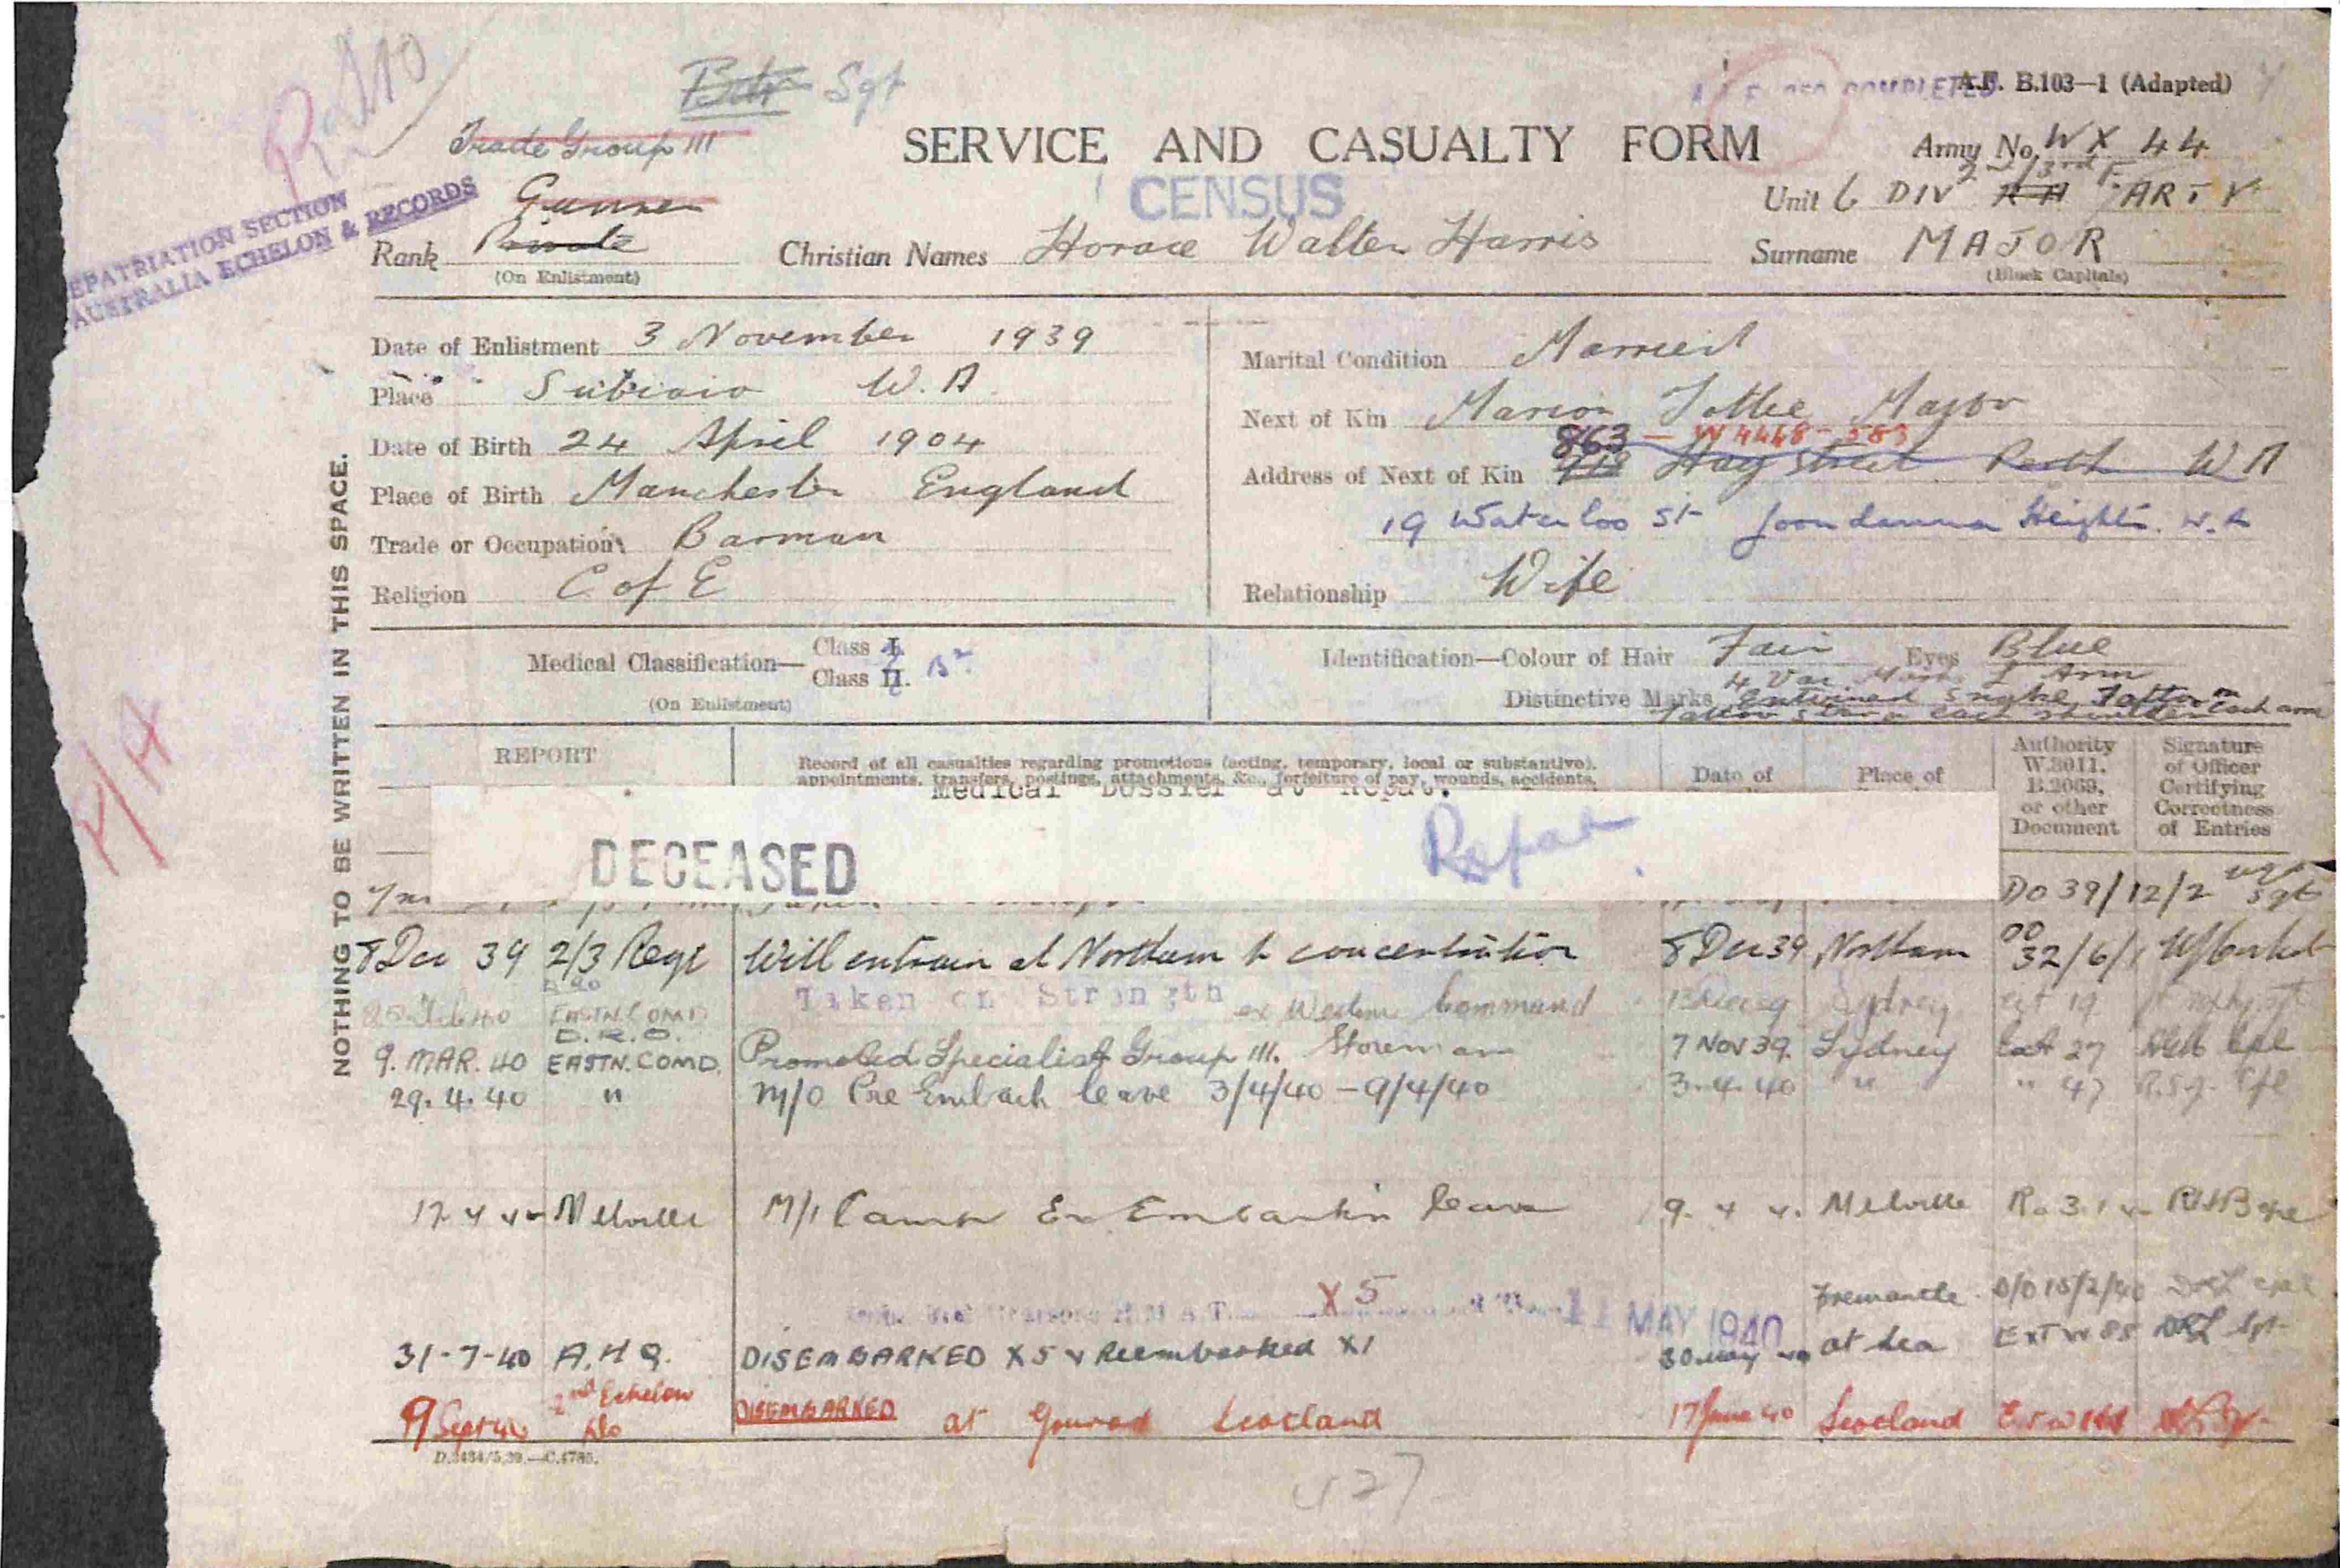 Sgt
A.F. B.103—1 (Adapted)
COMPLETED
Trade Group III
SERVICE AND CASUALTY FORM
Army No. WX 44
CENSUS
2/3rd F.
Unit 6 DIV RAA ARTY
REPATRIATION SECTION
AUSTRALIA ECHELON & RECORDS
Gunner
Rank Private
Christian Names Horace Walter Harris
Surname MAJOR
(On Enlistment)
(Block Capitals)
Date of Enlistment 3 November 1939
Marital Condition Married
Place Subiaco W.A.
Next of Kin Marion Major
Date of Birth 24 April 1904
863 — W4468-583
Address of Next of Kin Hay Street Perth WA
Place of Birth Manchester England
19 Waterloo St Joondanna Heights. W.A
Trade or Occupation Barman
Religion C of E
Relationship Wife
Medical Classification— Class I. Class II. B2
(On Enlistment)
Identification—Colour of Hair Fair Eyes Blue
4 Vac Marks L Arm
Distinctive Marks Entwined Snake Tattoo on each arm
Tattoo star on each shoulder
NOTHING TO BE WRITTEN IN THIS SPACE.
REPORT
Record of all casualties regarding promotions (acting, temporary, local or substantive),
appointments, transfers, postings, attachments, &c., forfeiture of pay, wounds, accidents,
Date of
Place of
Authority W.3011, B.2069, or other Document
Signature of Officer Certifying Correctness of Entries
Medical Dossier at Repat.
DECEASED
Repat
DO 39/12/2 Sgt
8 Dec 39 2/3 Regt Will entrain at Northam to concentration 8 Dec 39 Northam DO 32/6/1
EASTN. COMD Taken on Strength ex Western Command Sydney
D.R.O.
9. MAR. 40 EASTN. COMD. Promoted Specialist Group III. Storeman 7 NOV 39. Sydney Lat 27
29. 4. 40 " M/O Pre Embark leave 3/4/40 – 9/4/40 3. 4. 40 " " 47
Melville M/I Camp Ex Embarkn leave 9. 4 Melville Ro 3.1
X5 11 MAY 1940 Fremantle D/O 15/2/40
31-7-40 A.H.Q. DISEMBARKED X5 & Reembarked X1 30 May 40 at sea EXT W 88
9 Sept 40 2nd Echelon DISEMBARKED at Gourock Scotland 17 June 40 Scotland
D.3484/5.39.—C.4785.